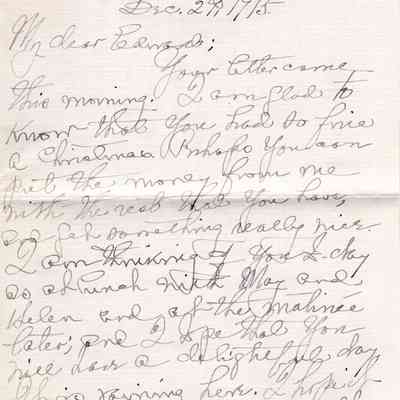 Dec. 29, 1915.
My dear Edward;
Your letter came
this morning. I am glad to
know that you had so fine
a Christmas. Perhaps you can
put the money from me
with the rest that you have,
and get something really nice.
I am thinking of you to-day
as at lunch with May and
Helen and at the matinée
later; and I hope that you
will have a delightful day.
It is raining here. I hope it